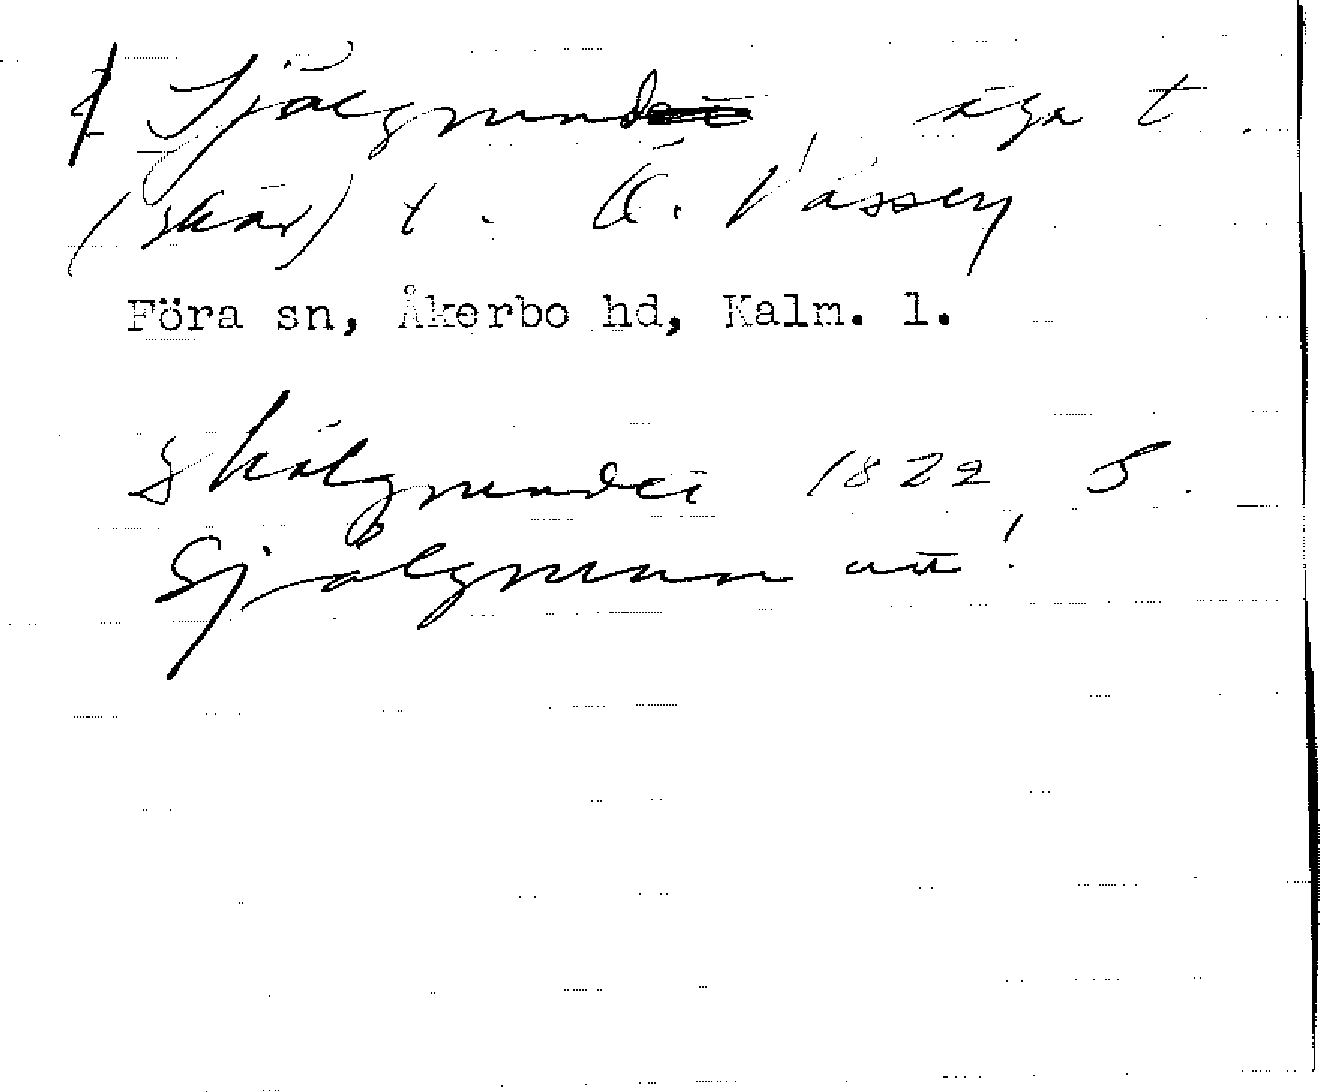 Själgrund äga t.
(skär) t. Ö. Vässby
Föra sn, Åkerbo hd, Kalm. l.
Skälgrundet 1822 5.
Själgrunn utt!